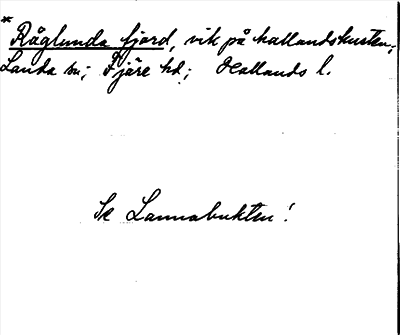 * Råglunda fjord, vik på hallandskusten,
Landa sn; Fjäre hd; Hallands l.
Se Lannabukten!